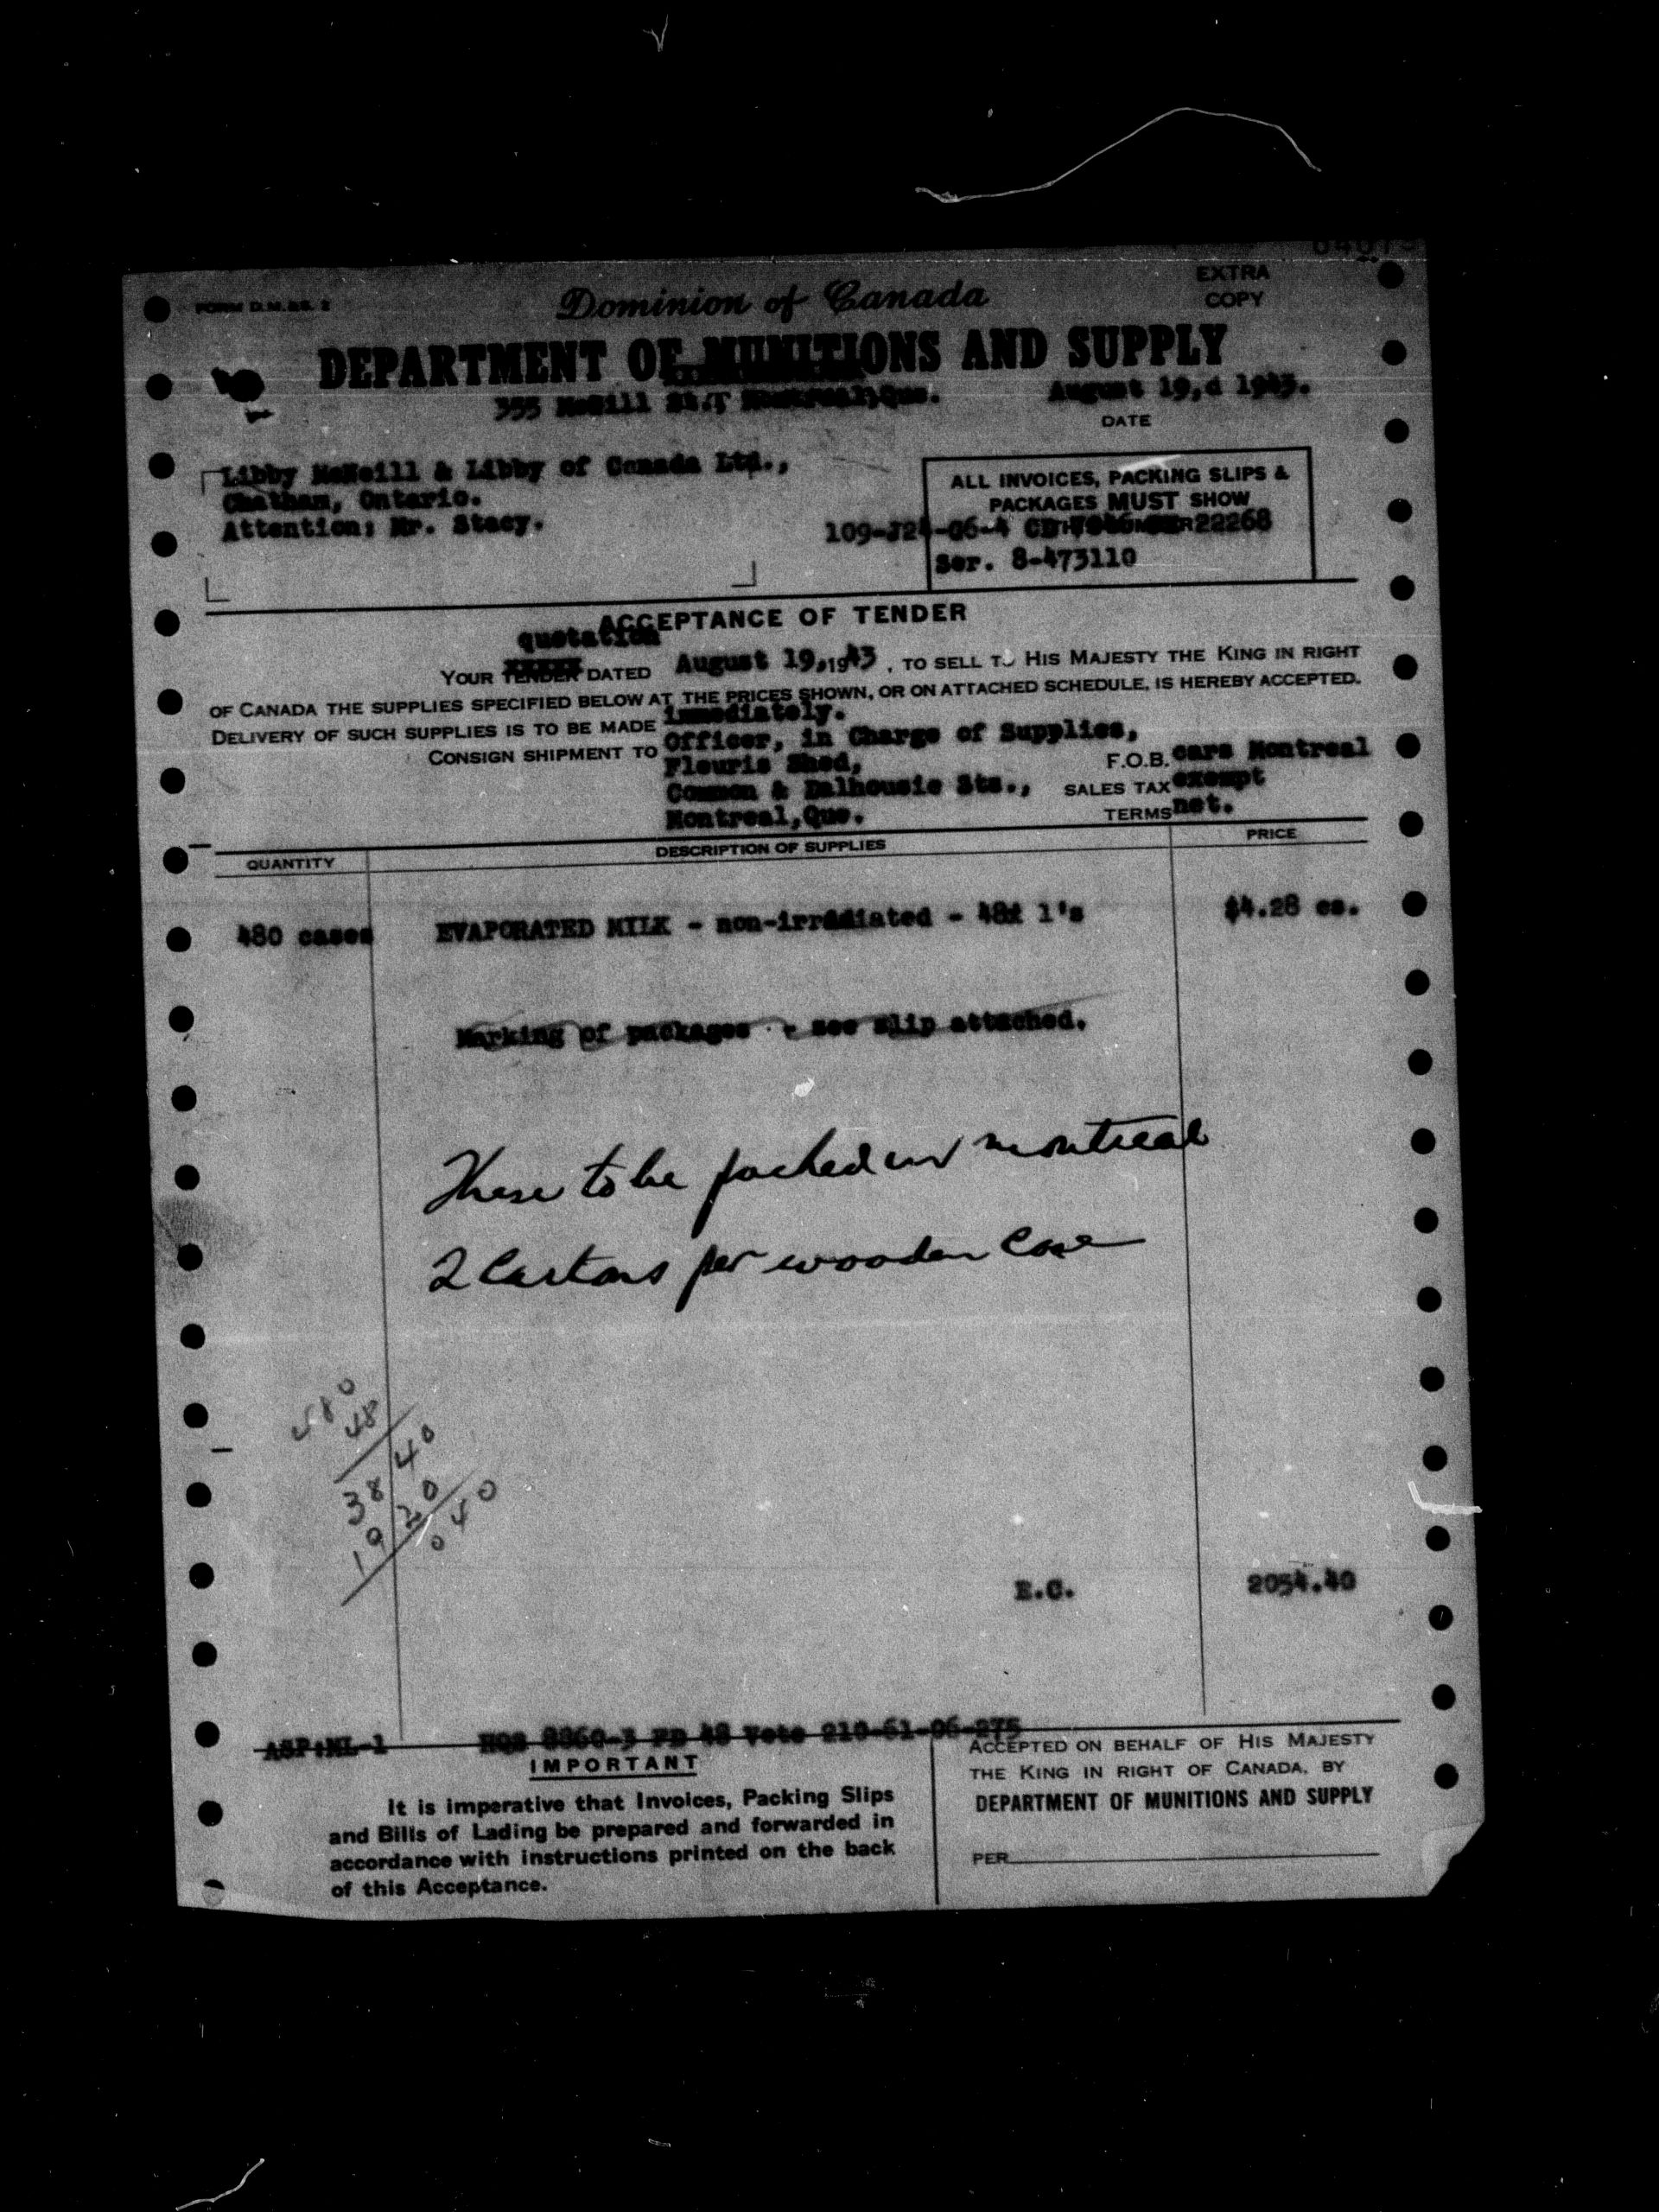 FORM D.M.&S. 2
Dominion of Canada
EXTRA
COPY
DEPARTMENT OF MUNITIONS AND SUPPLY
355 McGill St., Montreal, Que.
August 19,d 1943.
DATE
Libby McNeill & Libby of Canada Ltd.,
Chatham, Ontario.
Attention: Mr. Stacy.
ALL INVOICES, PACKING SLIPS &
PACKAGES MUST SHOW
109-J24-G6-4 CD 22268
Ser. 8-473110
ACCEPTANCE OF TENDER
quotation
YOUR TENDER DATED August 19, 1943, TO SELL TO HIS MAJESTY THE KING IN RIGHT
OF CANADA THE SUPPLIES SPECIFIED BELOW AT THE PRICES SHOWN, OR ON ATTACHED SCHEDULE, IS HEREBY ACCEPTED.
DELIVERY OF SUCH SUPPLIES IS TO BE MADE immediately.
CONSIGN SHIPMENT TO Officer, in Charge of Supplies,
Fleuris Shed,
Common & Dalhousie Sts.,
Montreal, Que.
F.O.B. cars Montreal
SALES TAX exempt
TERMS net.
QUANTITY DESCRIPTION OF SUPPLIES PRICE
480 cases EVAPORATED MILK - non-irradiated - 48/ 1's $4.28 cs.
Marking of packages - see slip attached.
These to be packed in Montreal
2 Cartons per wooden Case
480
48
3840
1920
040
E.C. 2054.40
ASP:ML-1 HQS 8860-3 FD 48 Vote 210-61-06-275
IMPORTANT
It is imperative that Invoices, Packing Slips
and Bills of Lading be prepared and forwarded in
accordance with instructions printed on the back
of this Acceptance.
ACCEPTED ON BEHALF OF HIS MAJESTY
THE KING IN RIGHT OF CANADA, BY
DEPARTMENT OF MUNITIONS AND SUPPLY
PER